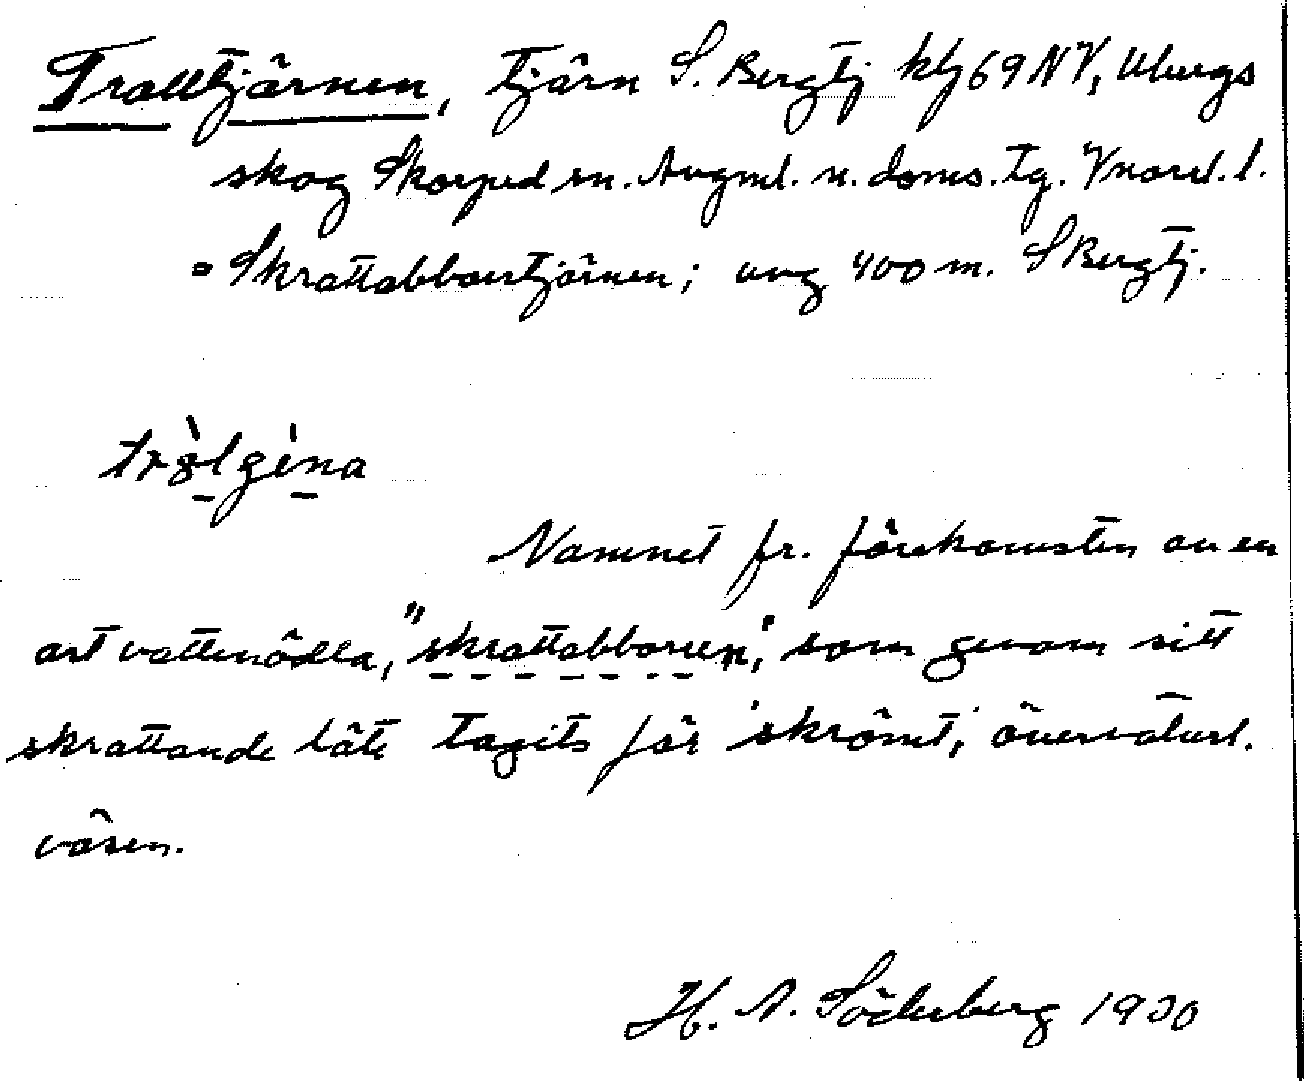 Trolltjärnen, tjärn S. Bergtj klj 69 NV, Ubergs
skog Skorped sn. Ångml. n. doms. tg. Vnorrl. l.
= Skrattabborrtjärnen; ung 400 m. S Bergtj.
Namnet fr. förekomsten av en
art vattenödla, "skrattabborren", som genom sitt
skrattande läte tagits för 'skrömt', övernaturl.
väsen.
H. A. Söderberg 1930